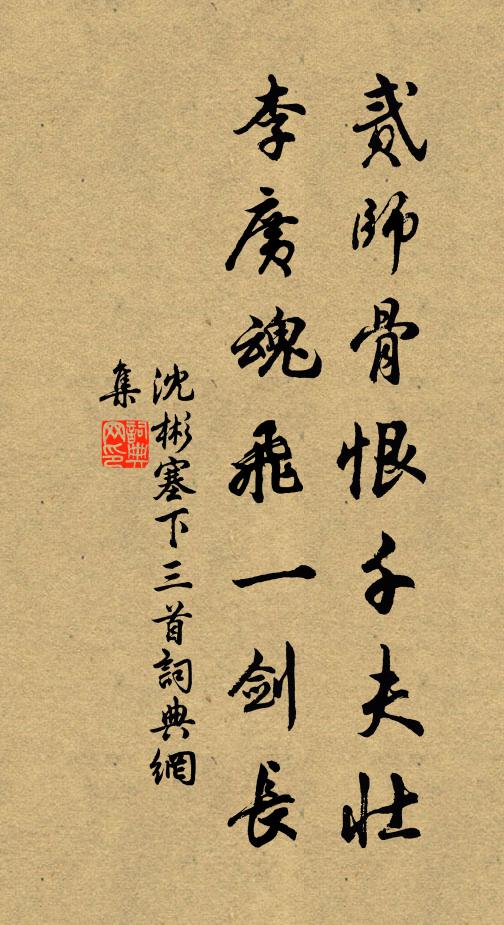 貳師骨恨千夫壯
李廣魂飛一劍長
沈彬塞下三首詞典網
集
詞典
网印